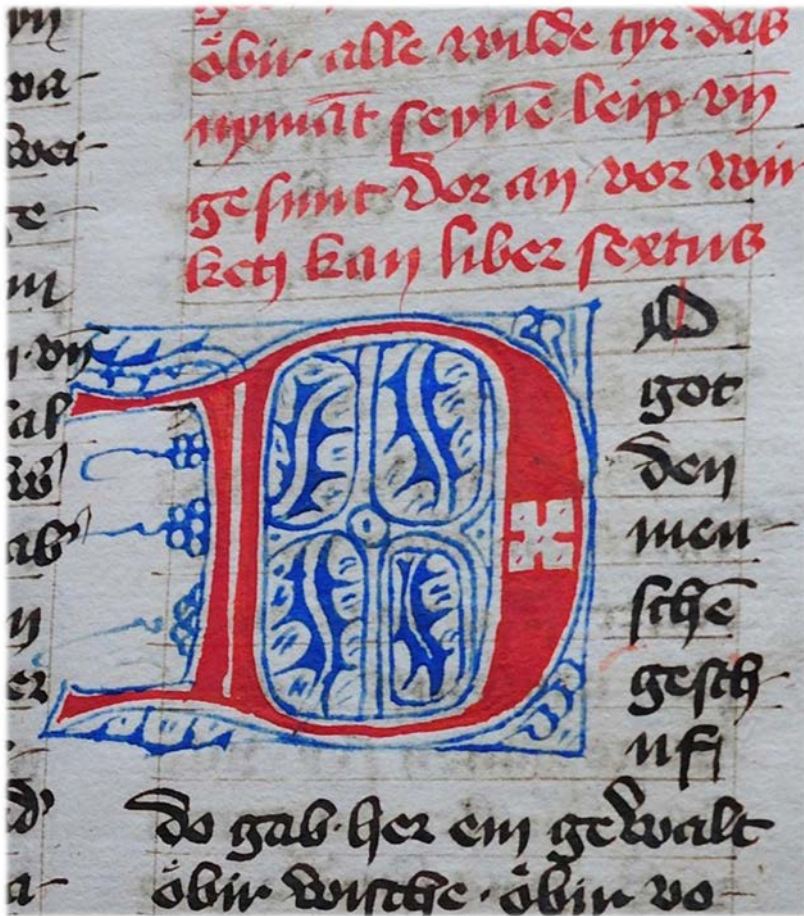 öbir alle wilde tyr · das
nymāt seynē leip vn̄
gesunt dor an vor wir
ken kan liber sextus
DO
got
den
men-
schē
gesch-
uff
do gab · her em gewalt
öbir vissche · öbir vo-